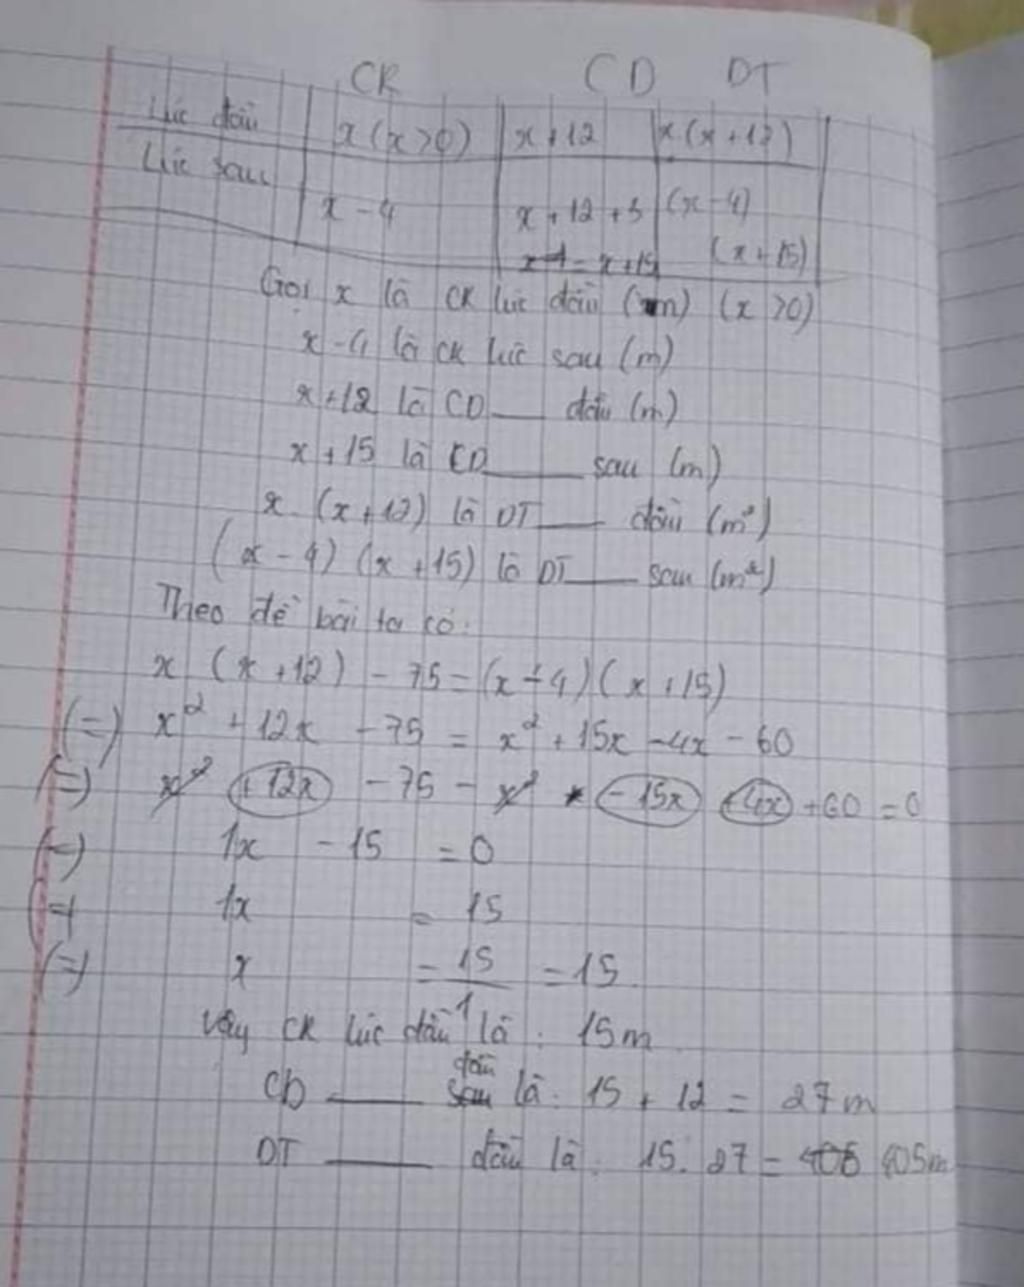 CR CD DT
Lúc đầu x (x>0) x+12 x(x+12)
Lúc sau x-4 x+12+3 (x-4)
= x+15 (x+15)
Gọi x là CR lúc đầu (m) (x>0)
x-4 là CR lúc sau (m)
x+12 là CD ___ đầu (m)
x+15 là CD ___ sau (m)
x (x+12) là DT ___ đầu (m²)
(x-4) (x+15) là DT ___ sau (m²)
Theo đề bài ta có:
x (x+12) - 75 = (x-4) (x+15)
(=) x² + 12x - 75 = x² + 15x - 4x - 60
(=) x² + 12x - 75 - x² - 15x + 4x + 60 = 0
(=) 1x - 15 = 0
(=) 1x = 15
(=) x = 15/1 = 15
Vậy CR lúc đầu là: 15m
CD ___ đầu là: 15 + 12 = 27m
DT ___ đầu là: 15. 27 = 405m